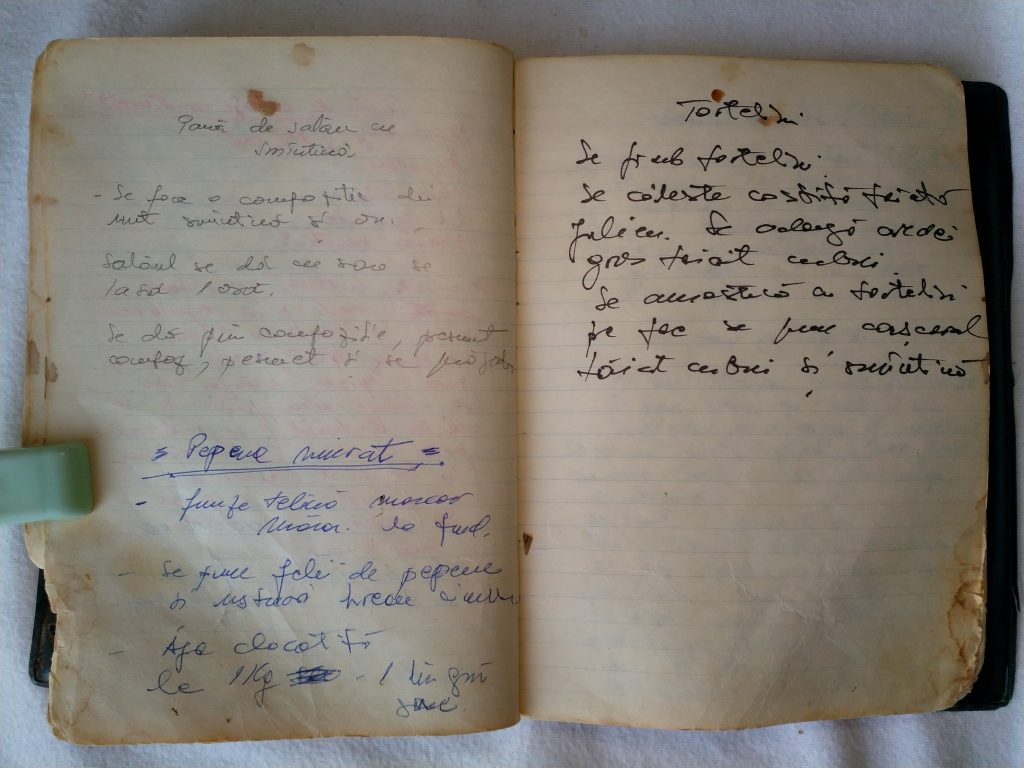 Pană de salău cu
smîntînă
- Se face o compoziție din
unt smîntînă și ou.
Salăul se dă cu sare se
lasă 1 oră.
Se dă prin compoziție, pesmet
compoz, pesmet și se prăjește
= Pepene murat =
- frunze telină mărar
la fund.
- Se pune felii de pepene
și usturoi hrean
- Apa clocotită
la 1 Kg - 1 lingură
sare.
Tortelini
Se fierb tortelini
Se călește costiță tăiată
julien. Se adaugă ardei
gras tăiat cubui
Se amestecă cu tortelini
pe foc se pune cașcaval
tăiat cubui și smîntînă